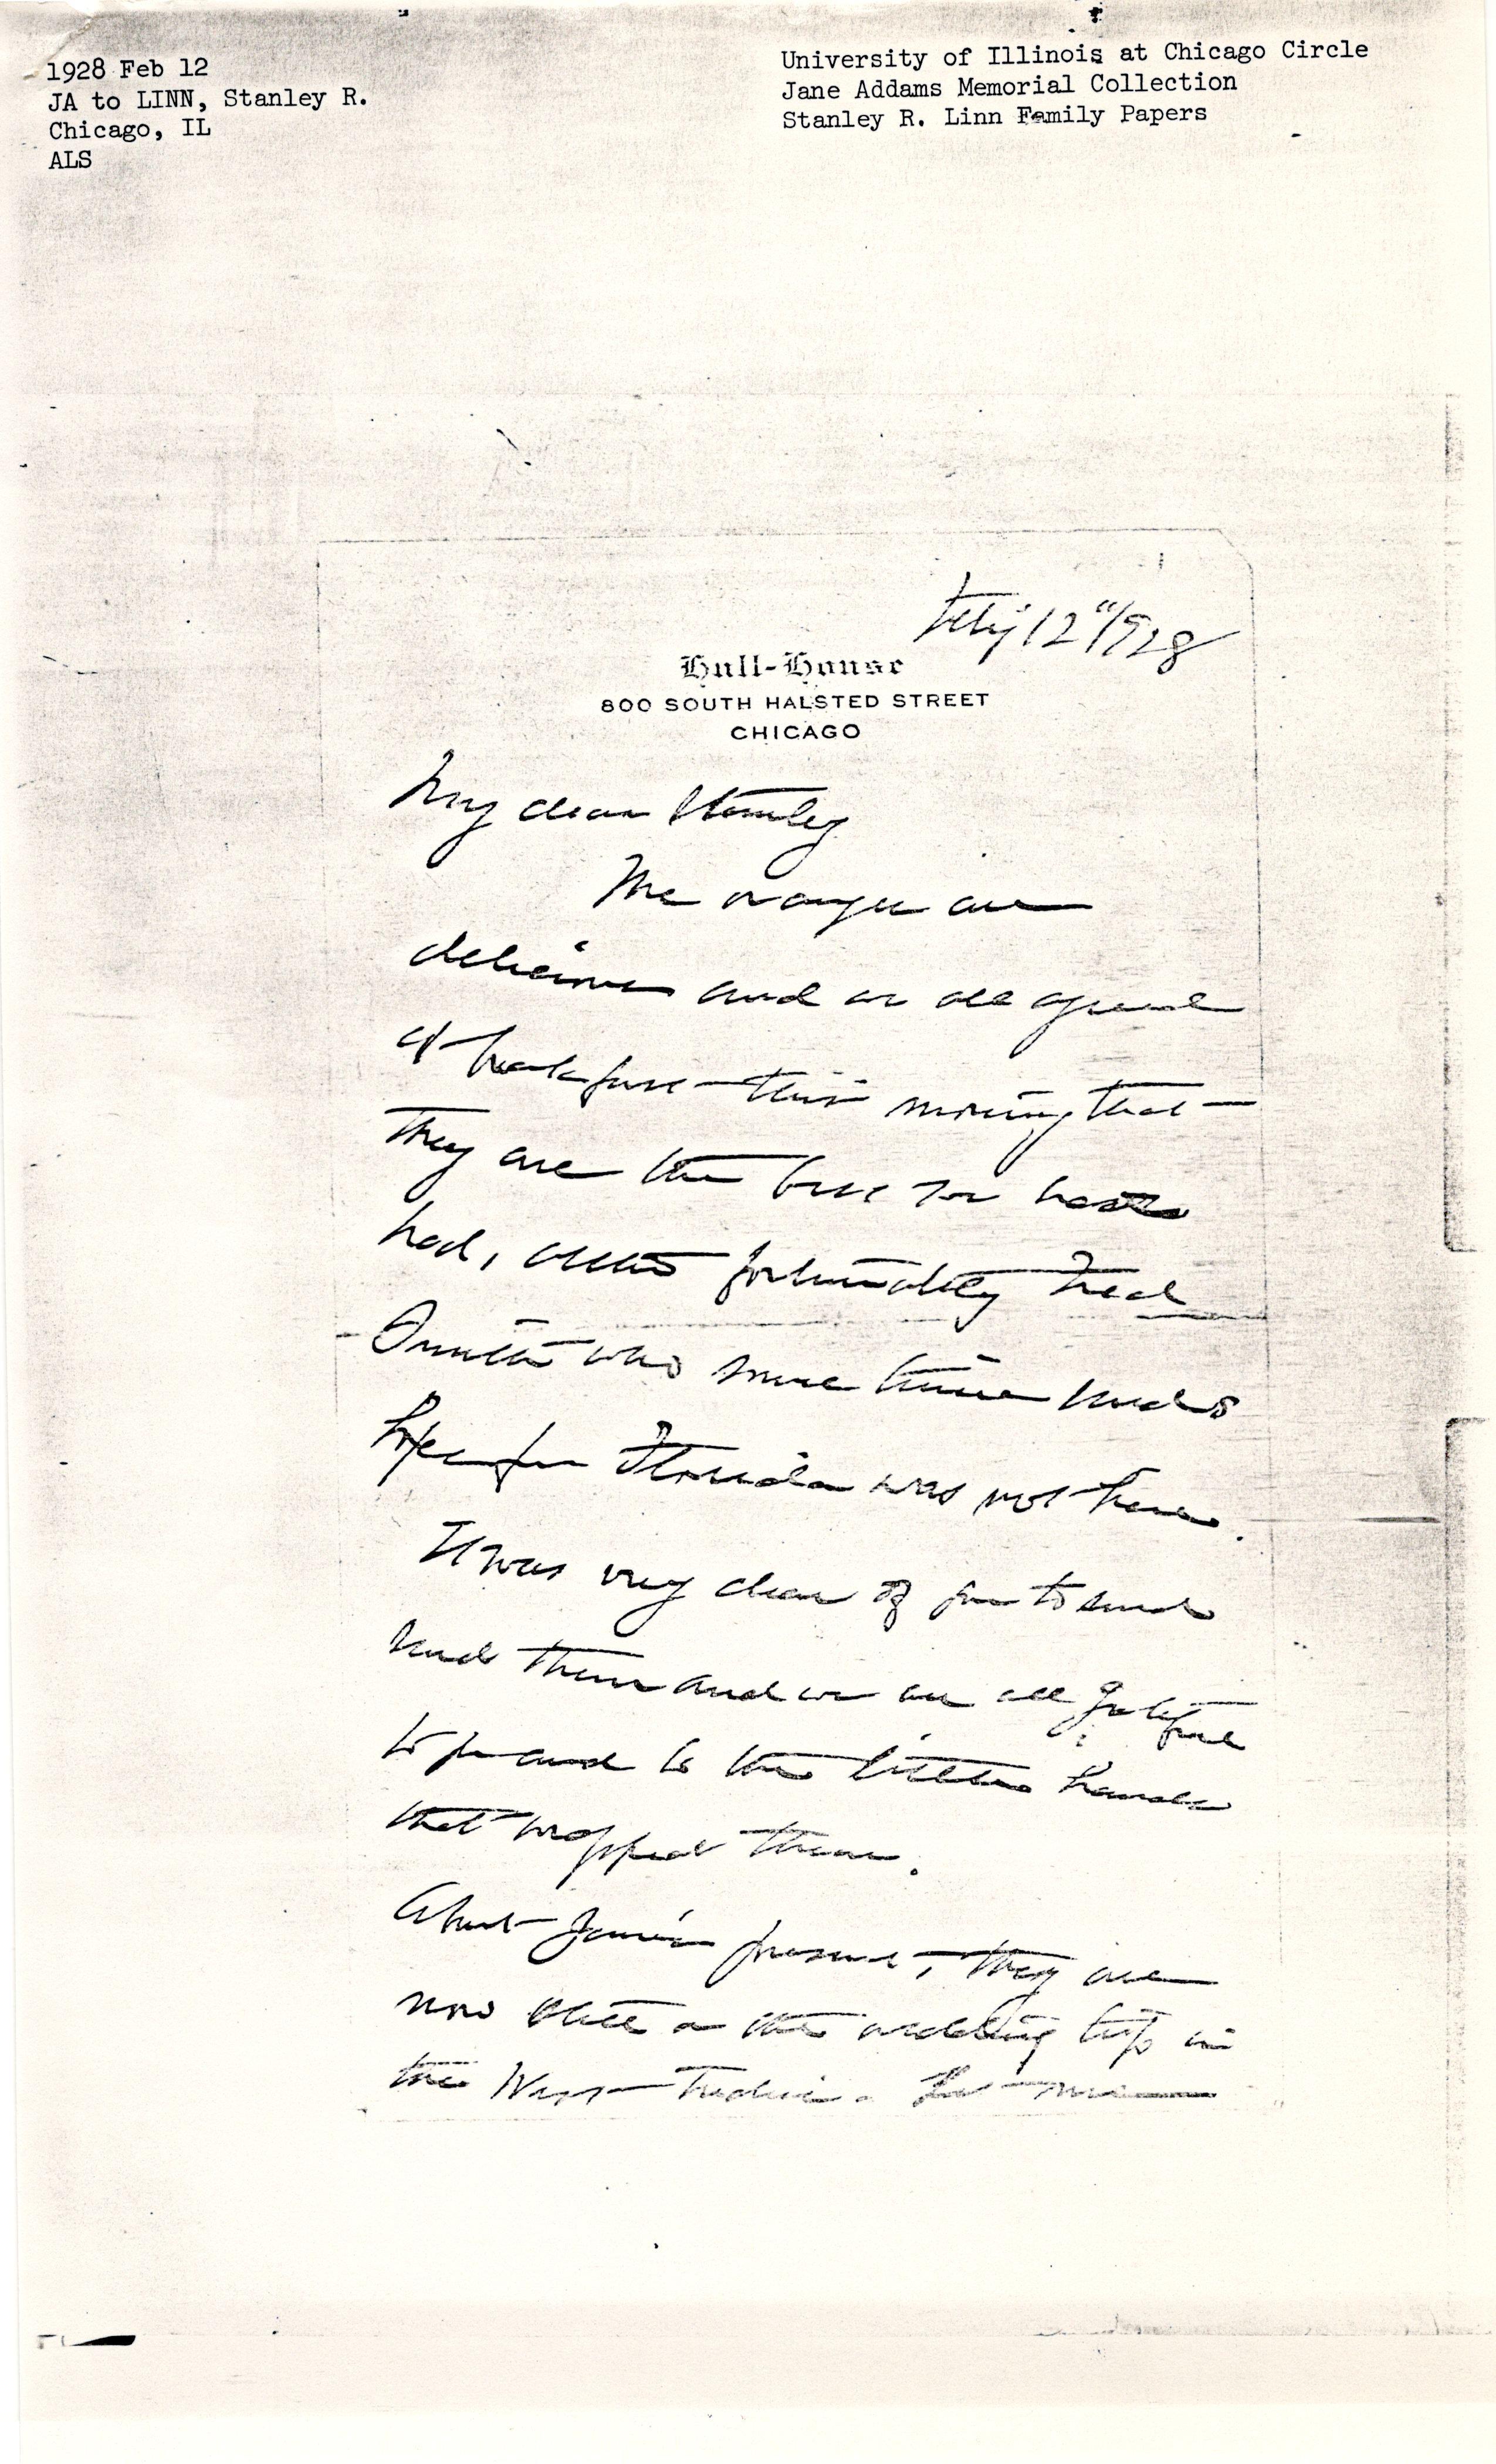 1928 Feb 12
JA to LINN, Stanley R.
Chicago, IL
ALS
University of Illinois at Chicago Circle
Jane Addams Memorial Collection
Stanley R. Linn Family Papers
Feby 12" 1928
Hull-House
800 SOUTH HALSTED STREET
CHICAGO
My dear Stanley
The oranges are
delicious and we all agreed
at breakfast this morning that
they are the best we have
had, altho fortunately Fred
who some times sends
for Florida was not here.
It was very dear of you to send
send them and we are all grateful
to you and to the little hands
that wrapped them.
About present, they are
now still on the wedding trip in
the West Indies.